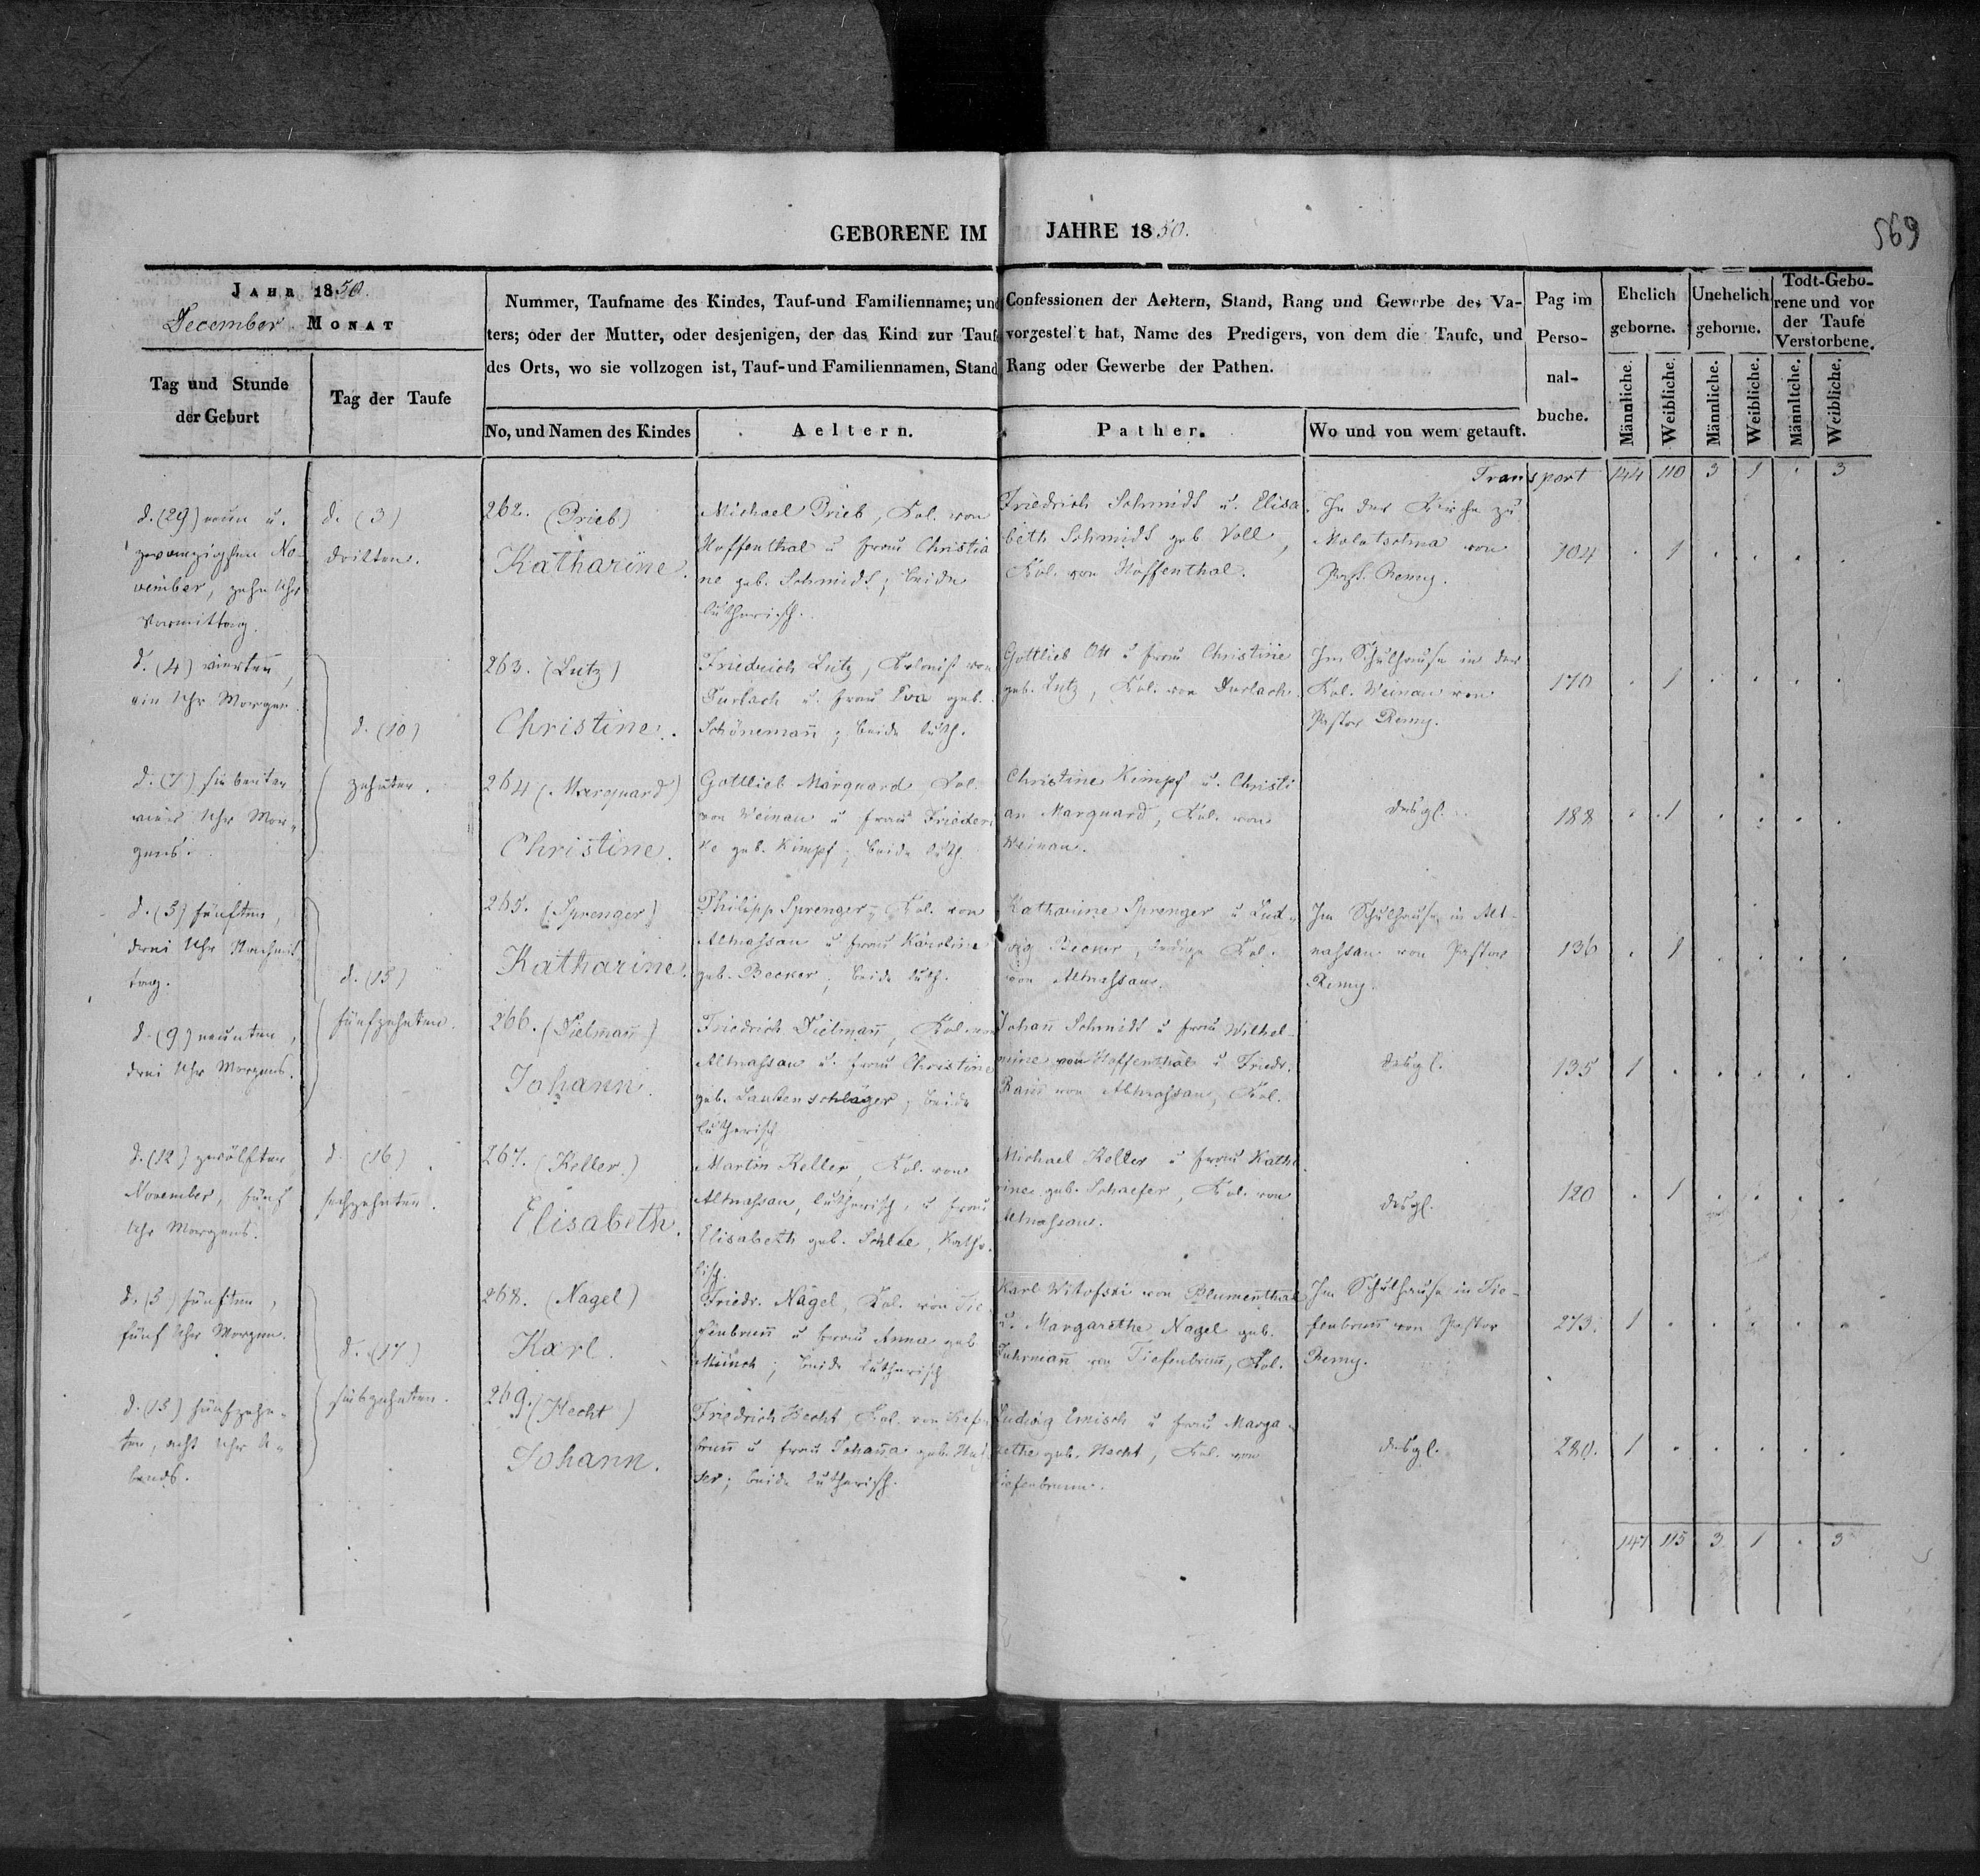 GEBORENE IM JAHRE 1850.
569
JAHR 1850.
December MONAT
Tag und Stunde
der Geburt
Tag der Taufe
Nummer, Taufname des Kindes, Tauf-und Familienname; und Confessionen der Aeltern, Stand, Rang und Gewerbe des Va-
ters; oder der Mutter, oder desjenigen, der das Kind zur Taufe vorgestellt hat, Name des Predigers, von dem die Taufe, und
des Orts, wo sie vollzogen ist, Tauf-und Familiennamen, Stand Rang oder Gewerbe der Pathen.
No, und Namen des Kindes
Aeltern.
Pather.
Wo und von wem getauft.
Pag im
Perso-
nal-
buche.
Ehelich
geborne.
Unehelich
geborne.
Todt-Gebo-
rene und vor
der Taufe
Verstorbene.
Männliche.
Weibliche.
Männliche.
Weibliche.
Männltche.
Weibliche.
Transport 144 110 3 1 . 3
d. (29) neun u.
zwanzigsten No-
vember, zehn Uhr
Vormittag.
d. (3)
dritten.
262. (Prieb)
Katharine.
Michael Prieb, Kol. von
Hoffenthal u Frau Christia
ne geb. Schmidt; beide
lutherisch.
Friedrich Schmidt u. Elisa
beth Schmidt geb Voll,
Kol. von Hoffenthal.
In der Kirche zu
Molotschna von
Past. Remy.
104 . 1 . . . .
d. (4) vierten,
ein Uhr Morgen.
d. (10)
263. (Lutz)
Christine.
Friedrich Lutz, Kolonist von
Durlach u. Frau Eva geb.
Schönemañ; beide luth.
Gottlieb Ott u Frau Christine
geb. Lutz, Kol. von Durlach.
Im Schulhause in der
Kol. Weinau von
Pastor Remy.
170 . 1 . . . .
d. (7) siebenten
vier Uhr Mor-
gens.
zehnten.
264 (Marquard)
Christine.
Gottlieb Marquard Kol.
von Weinau u Frau Friederi
ke geb. Kimpf; beide luth.
Christine Kimpf u. Christi
an Marquard, Kol. von
Weinau.
desgl.
188 . 1 . . . .
d. (5) fünften,
drei Uhr Nachmit
tag.
d. (15)
265. (Sprenger)
Katharine.
Philipp Sprenger, Kol. von
Altnassau u Frau Karoline
geb. Becker; beide luth.
Katharine Sprenger u Lud-
wig Becker, ledige Kol.
von Altnassau.
Im Schulhause in Alt-
nassau von Pastor
Remy.
136 . 1 . . . .
d. (9) neunten,
drei Uhr Morgens.
fünfzehnten.
266. (Dielmañ)
Johann.
Friedrich Dielmañ, Kol. von
Altnassau u. Frau Christine
geb. Lautenschläger; beide
lutherisch
Johañ Schmidt u Frau Wilhel-
mine von Hoffenthal u Friedr.
von Altnassau, Kol.
desgl.
135 1 . . . . .
d. (12) zwölften
November, fünf
Uhr Morgens.
d. (16)
sechzehnten.
267. (Keller)
Elisabeth.
Martin Keller, Kol. von
Altnassau, lutherisch, u Frau
Elisabeth geb. Schlee, katho-
lisch.
Michael Keller u Frau Katha
rine geb. Schaefer, Kol. von
Altnassau.
desgl.
120 . 1 . . . .
d. (5) fünften,
fünf Uhr Morgen.
d. (17)
268. (Nagel)
Karl.
Friedr. Nagel, Kol. von Tie-
fenbruñ u Frau Anna geb
Münch; beide lutherisch
Karl Witofski von Blumenthal
u. Margarethe Nagel geb.
Fuhrmañ von Tiefenbruñ, Kol.
Im Schulhause in Tie-
fenbruñ von Pastor
Remy.
273. 1 . . . . .
d. (15) fünfzehn-
ten, acht Uhr A-
bends.
siebzehnten.
269. (Hecht)
Johann.
Friedrich Hecht Kol. von Tiefen
bruñ u Frau Johaña geb.
beide lutherisch.
Ludwig Emisch u Frau Marga-
rethe geb. Hecht, Kol. von
Tiefenbrunn.
desgl.
280. 1 . . . . .
147 115 3 1 . 3